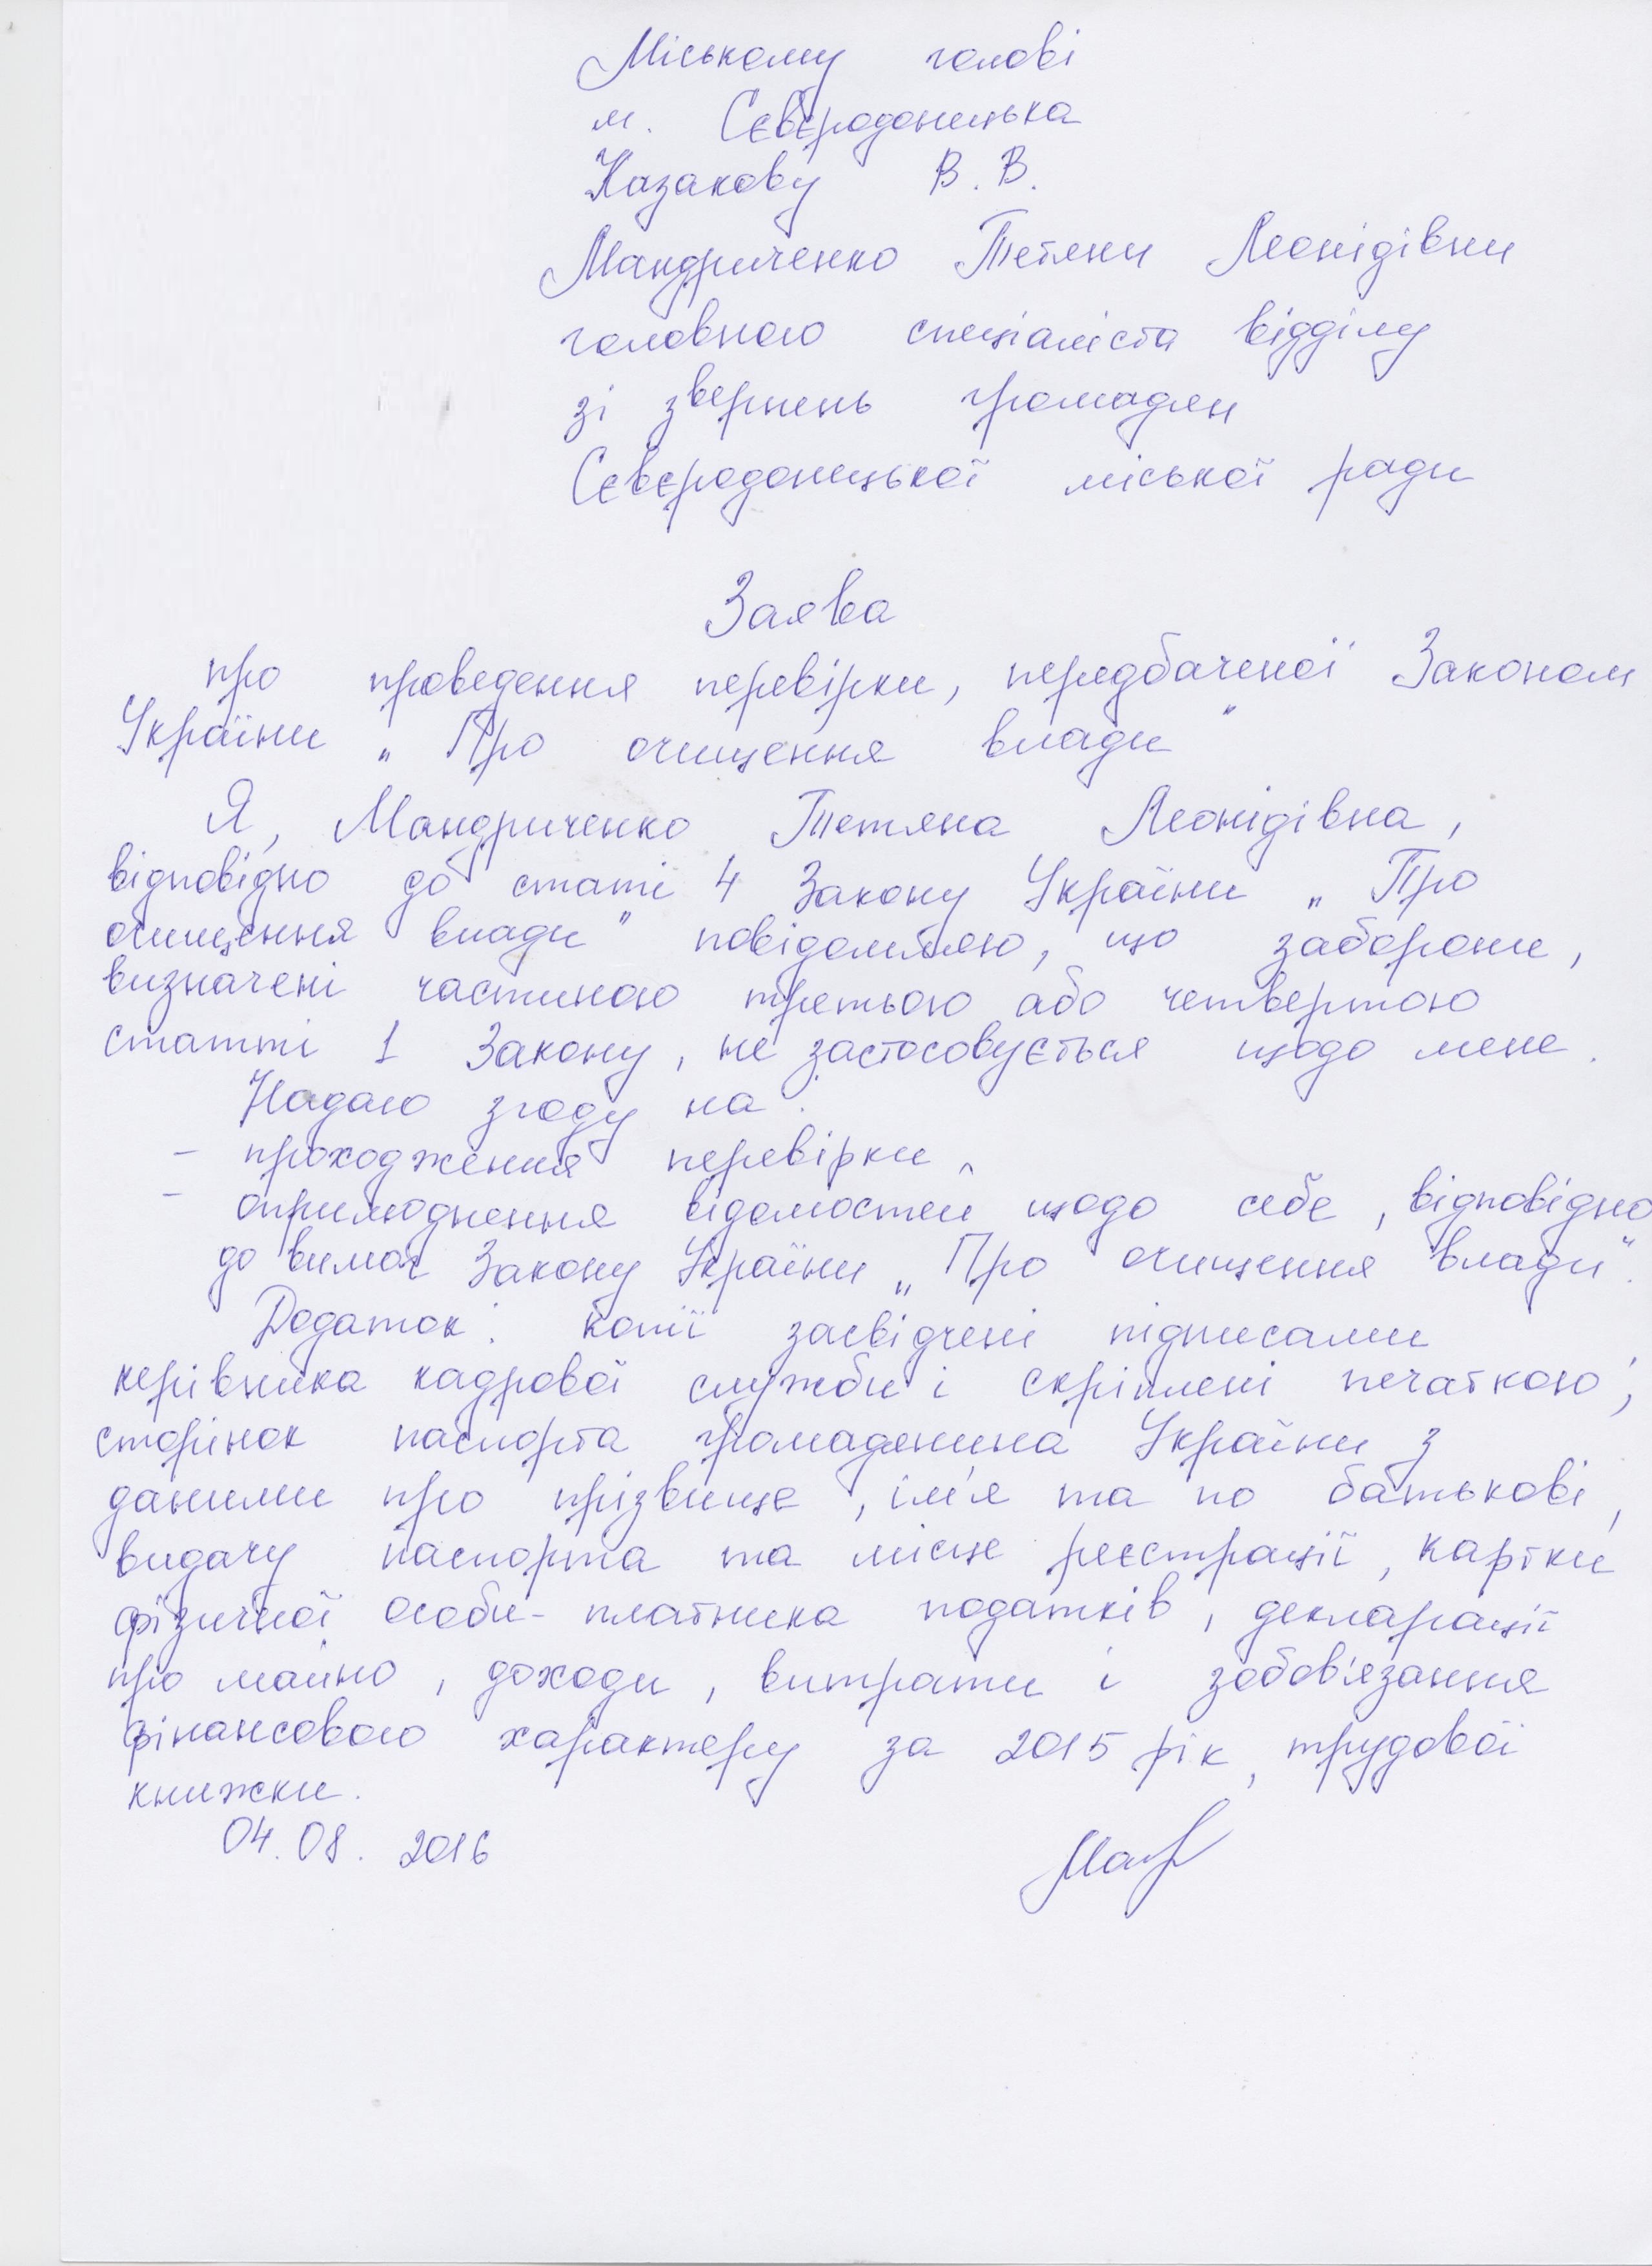 Міському голові
м. Сєвєродонецька
Казакову В. В.
Мандриченко Тетяни Леонідівни
головного спеціаліста відділу
зі звернень громадян
Сєвєродонецької міської ради
Заява
про проведення перевірки, передбаченої Законом
України „Про очищення влади"
Я, Мандриченко Тетяна Леонідівна,
відповідно до статі 4 Закону України „Про
очищення влади" повідомляю, що заборони,
визначені частиною третьою або четвертою
статті 1 Закону, не застосовується щодо мене.
Надаю згоду на:
- проходження перевірки,
- оприлюднення відомостей щодо себе, відповідно
до вимог Закону України „Про очищення влади".
Додаток: копії засвідчені підписами
керівника кадрової служби і скріплені печаткою;
сторінок паспорта громадянина України з
даними про прізвище, ім'я та по батькові,
видачу паспорта та місце реєстрації, картки
фізичної особи-платника податків, декларації
про майно, доходи, витрати і зобов'язання
фінансового характеру за 2015 рік, трудової
книжки.
04.08.2016